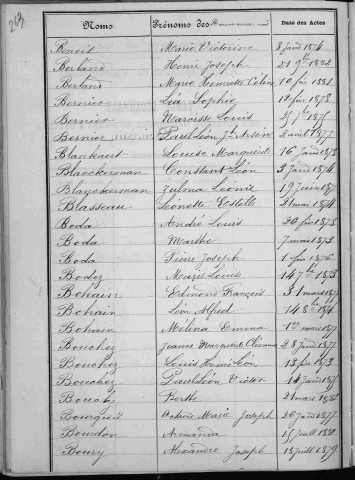 213
Noms Prénoms des Date des Actes
Benoit Marie Victorine 8 janv 1874
Bertand Henri Joseph 21 9bre 1882
Bertand Marie Henriette Céline 10 fév 1881
Bernier Léa Sophie 12 fév 1873
Bernier Narcisse Louis
Bernier Paul Léon Jh 2 avril 1877
Blankaert Louise Marguerite 16 janv 1873
Blanckerman Constant Léon 3 janv 1874
Blanckerman Zulma Léonie 19 juin
Blasseau Léonette Estelle 21 mai 1874
Boda André Louis 20 fév 1873
Boda Marthe 7 mars 1873
Boda Pierre Joseph 1 fév 1876
Bodez Marie Louise 14 7bre 1873
Bohain Edmond François 31 mars
Bohain Léon Alfred 14 8bre
Bohain Mélina Emma 1er mars
Bouchez Jeanne Marguerite 28 janv 1877
Bouchez Louis Henri Léon 13 fév 1873
Bouchez Paul Léon Victor 14 janv
Bouchy Berthe 21 mars 1882
Bourgeois Octavie Marie Joseph 26 janv 1877
Bourdon Armanda 15 juillet 1882
Boury Alexandre Joseph 18 juill 1879